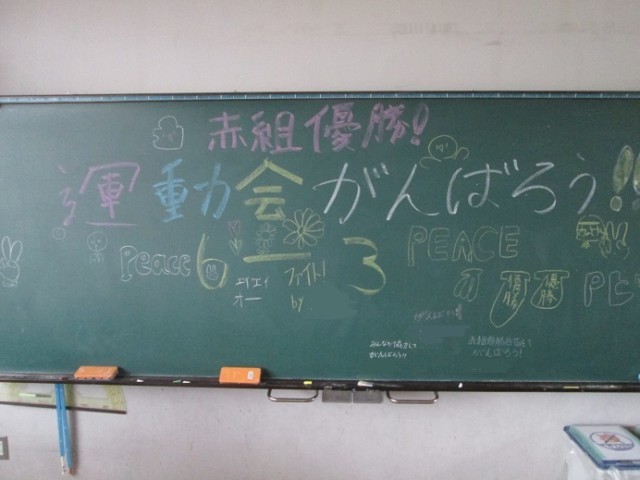 赤組優勝!
運動会がんばろう!!
Peace 6
一
3
PEACE
エイエイ
オー
ファイト!
by
優勝
優勝
PE
みんなで協力して
がんばろう!!
がんばろう!